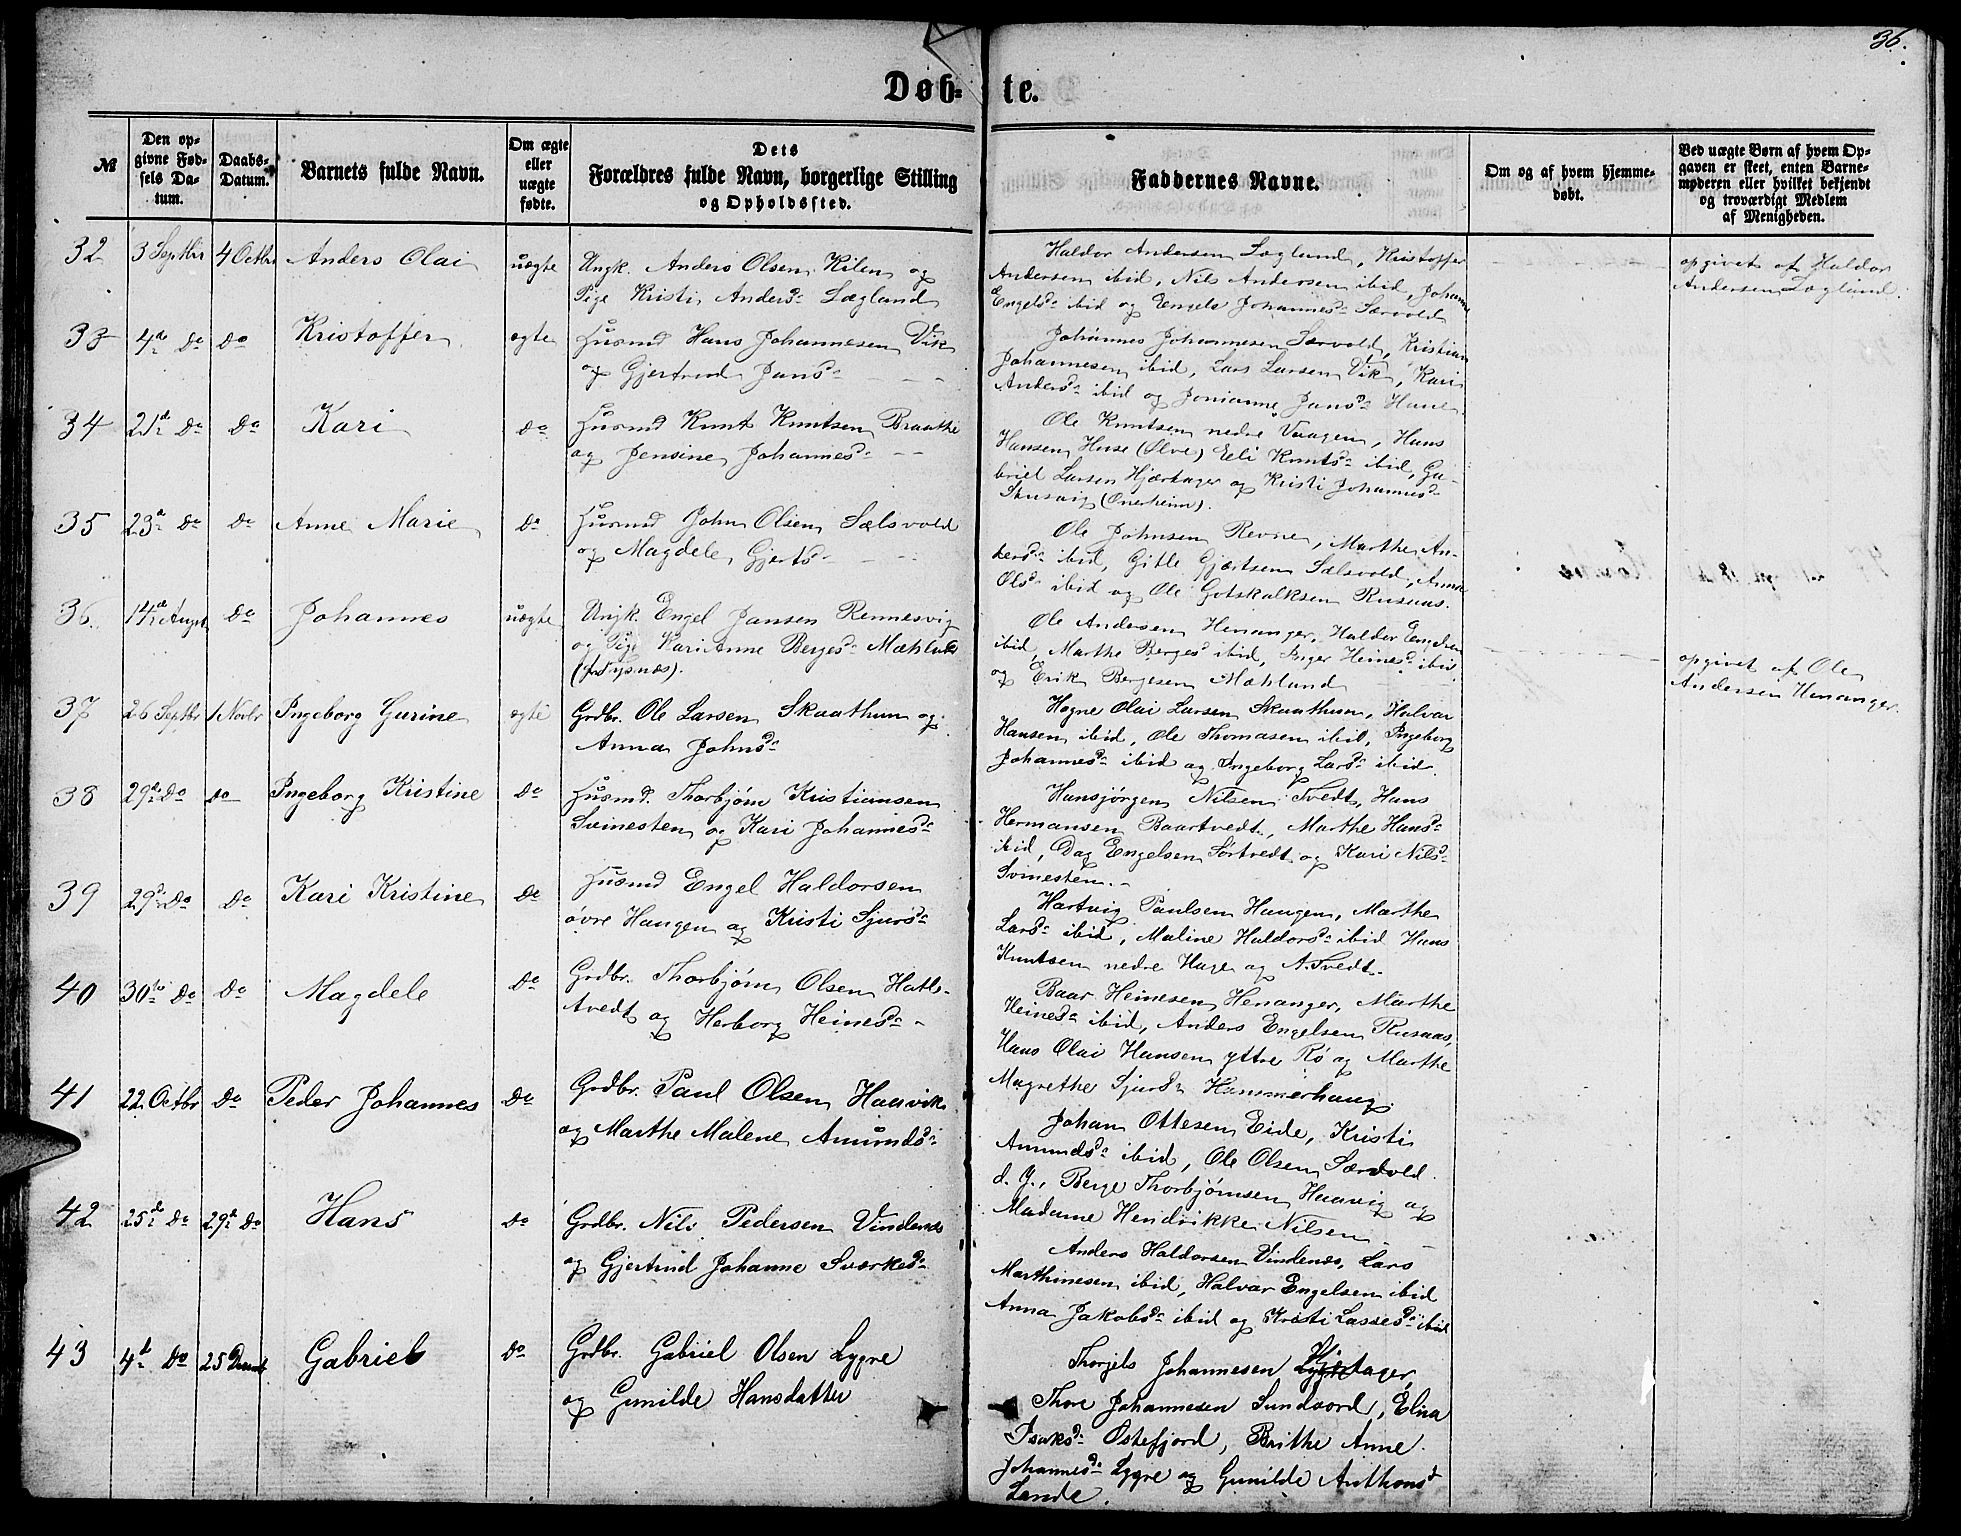 36.
Døb- te.
№
Den opgivne Fødsels Datum.
Daabs-Datum.
Barnets fulde Navn.
Om ægte eller uægte fødte.
Dets Forældres fulde Navn, borgerlige Stilling og Opholdssted.
Faddernes Navne.
Om og af hvem hjemmedøbt.
Ved uægte Børn af hvem Opgaven er skeet, enten Barnemoderen eller hvilket bekjendt og troværdigt Medlem af Menigheden.
32 3 Septbr 4 Octbr Anders Olai uægte Ungk. Anders Olsen Kilen og
Pige Kristi Andersd: Lægland
Haldor Andersen Lægland, Kristoffer
Andersen ibid, Nils Andersen ibid, Johanne
Engelsd: ibid og Engels Johannesd: Særvold
opgivet af Haldor
Andersen Lægland.
33 4de Do Do Kristoffer ægte Husmd Hans Johannesen Vik
og Gjertrud Jansd: - -
Johannes Johannesen Særvold, Kristian
Johannesen ibid, Lars Larsen Vik, Kari
Andersd: ibid og Jonianne Jansd: Hane
34 21d Do Do Kari Do Husmd Knut Knutsen Braathe
og Jensine Johannesd: - -
Ole Knutsen nedre Vaagen, Hans
Hansen Huse (Ølve) Eli Knutsd: ibid, Ga-
briel Larsen Hjærtager og Kristi Johannesd:
(Ønerheim).
35 23d Do Do Anne Marie Do Husmd John Olsen Sælsvold
og Magdele Gjertsd: - -
Ole Johnsen Revne, Marthe An-
dersd: ibid, Gitle Gjærtsen Sælsvold, Anna
Olsd: ibid og Ole Gotskalksen Rusaas.
36. 14de Augst Do Johannes uægte Ungk. Engel Jansen Rennesvig
og Pige Kari Anne Bergesd: Mæhlund
(Tysnæs).
Ole Andersen Henanger, Haldor Engelsen
ibid, Marthe Bergesd ibid, Inger Heinesd: ibid
og Erik Bergesen Mæhlund
opgivet af Ole
Andersen Henanger.
37 26 Septbr 1 Novbr Ingeborg Gurine ægte Grdbr. Ole Larsen Skaathun og
Anna Johnsd:
Hogne Olai Larsen Skaathun, Halvar
Hansen ibid, Ole Thomasen ibid, Ingeborg
Johannesd: ibid og Ingeborg Larsd: ibid.
38 29de Do Do Ingeborg Kristine Do Husmd. Thorbjørn Kristiansen
Svinesten og Kari Johannesd:
Hansjørgen Nilsen Tvedt, Hans
Hermansen Baartvedt, Marthe Hansd:
ibid, Dag Engelsen Sørtvedt og Kari Nilsd:
Svinesten.-
39 29de Do Do Kari Kristine Do Husmd Engel Haldorsen
øvre Haugen og Kristi Sjursd:
Hartvig Paulsen Haugen, Marthe
Larsd: ibid, Maline Haldorsd: ibid Hans
Knutsen nedre Hage og A. Tvedt.
40 30te Do Do Magdele Do Grdbr. Thorbjørn Olsen Hatle-
tvedt og Herborg Heinesd: -
Baar Heinesen Henanger, Marthe
Heinesd: ibid, Anders Engelsen Rusaas,
Hans Olai Hansen yttre Rø og Marthe
Magrethe Sjursd: Hammerhaug.
41 22 Octbr Do Peder Johannes Do Grdbr. Paul Olsen Haavik
og Marthe Malene Amundsd:
Johan Ottesen Eide, Kristi
Amundsd: ibid, Ole Olsen Særvold
d. Y., Berge Thorbjørnsen Haavig og
Madame Hendrikke Nilsen - -
42 25de Do 29d Do Hans Do Grdbr. Nils Pedersen Vindenes
og Gjertrud Johanne Sværkesd:
Anders Haldorsen Vindenes, Lars
Marthinesen ibid, Halvar Engelsen ibid
Anna Jakobsd: ibid og Kristi Lassesd: ibid
43 4d Do 25 Decmb Gabriel Do Grdbr. Gabriel Olsen Lygre
og Gunilde Hansdatter
Thorjels Johannesen Hjertager,
Thore Johannesen Sundvord, Elisa
Isaksd: Østefjord, Brithe Anne
Johannesd: Lygre og Gunilde Anthonsd
Lande.